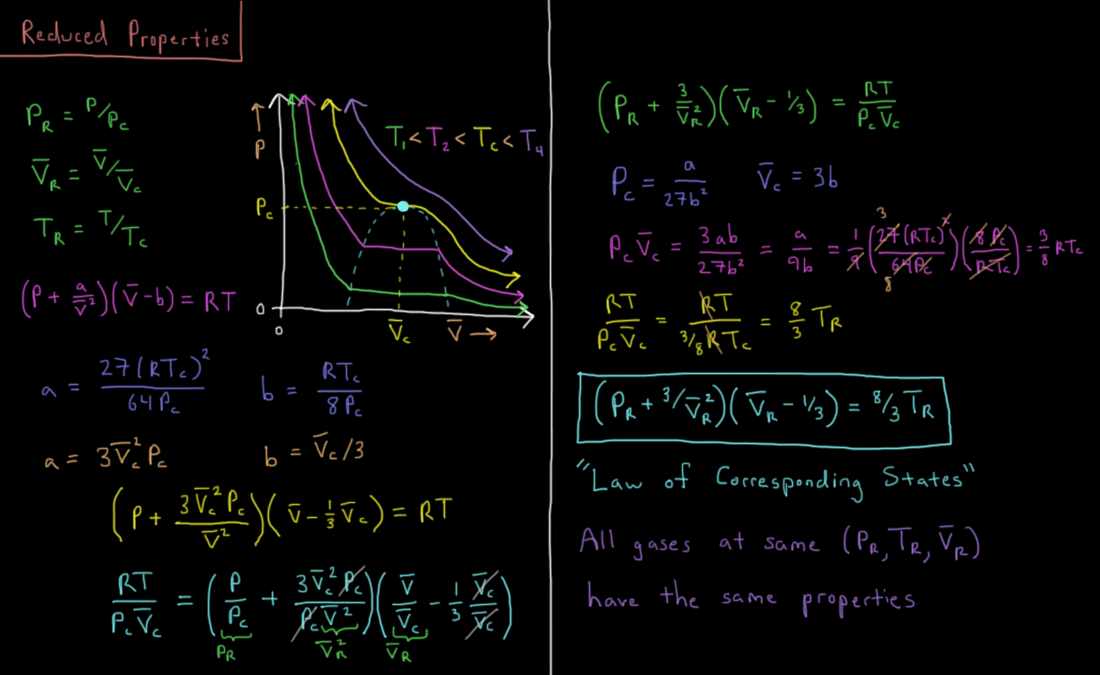 Reduced Properties
P_R = P/P_c
V̄_R = V̄/V̄_c
T_R = T/T_c
(P + a/V̄²)(V̄ - b) = RT
↑
P
T₁ < T₂ < T_c < T₄
P_c
0
0
V̄_c
V̄ →
a = 27(RT_c)²/64P_c
b = RT_c/8P_c
a = 3V̄_c²P_c
b = V̄_c/3
(P + 3V̄_c²P_c/V̄²)(V̄ - 1/3 V̄_c) = RT
RT/P_cV̄_c = (P/P_c + 3V̄_c²P_c/P_cV̄²)(V̄/V̄_c - 1/3 V̄_c/V̄_c)
P_R V̄_R² V̄_R
(P_R + 3/V̄_R²)(V̄_R - 1/3) = RT/P_cV̄_c
P_c = a/27b² V̄_c = 3b
P_cV̄_c = 3ab/27b² = a/9b = 1/9 (27(RT_c)²/64P_c)(8P_c/RT_c) = 3/8 RT_c
3
8
RT/P_cV̄_c = RT/3/8RT_c = 8/3 T_R
(P_R + 3/V̄_R²)(V̄_R - 1/3) = 8/3 T_R
"Law of Corresponding States"
All gases at same (P_R, T_R, V̄_R)
have the same properties